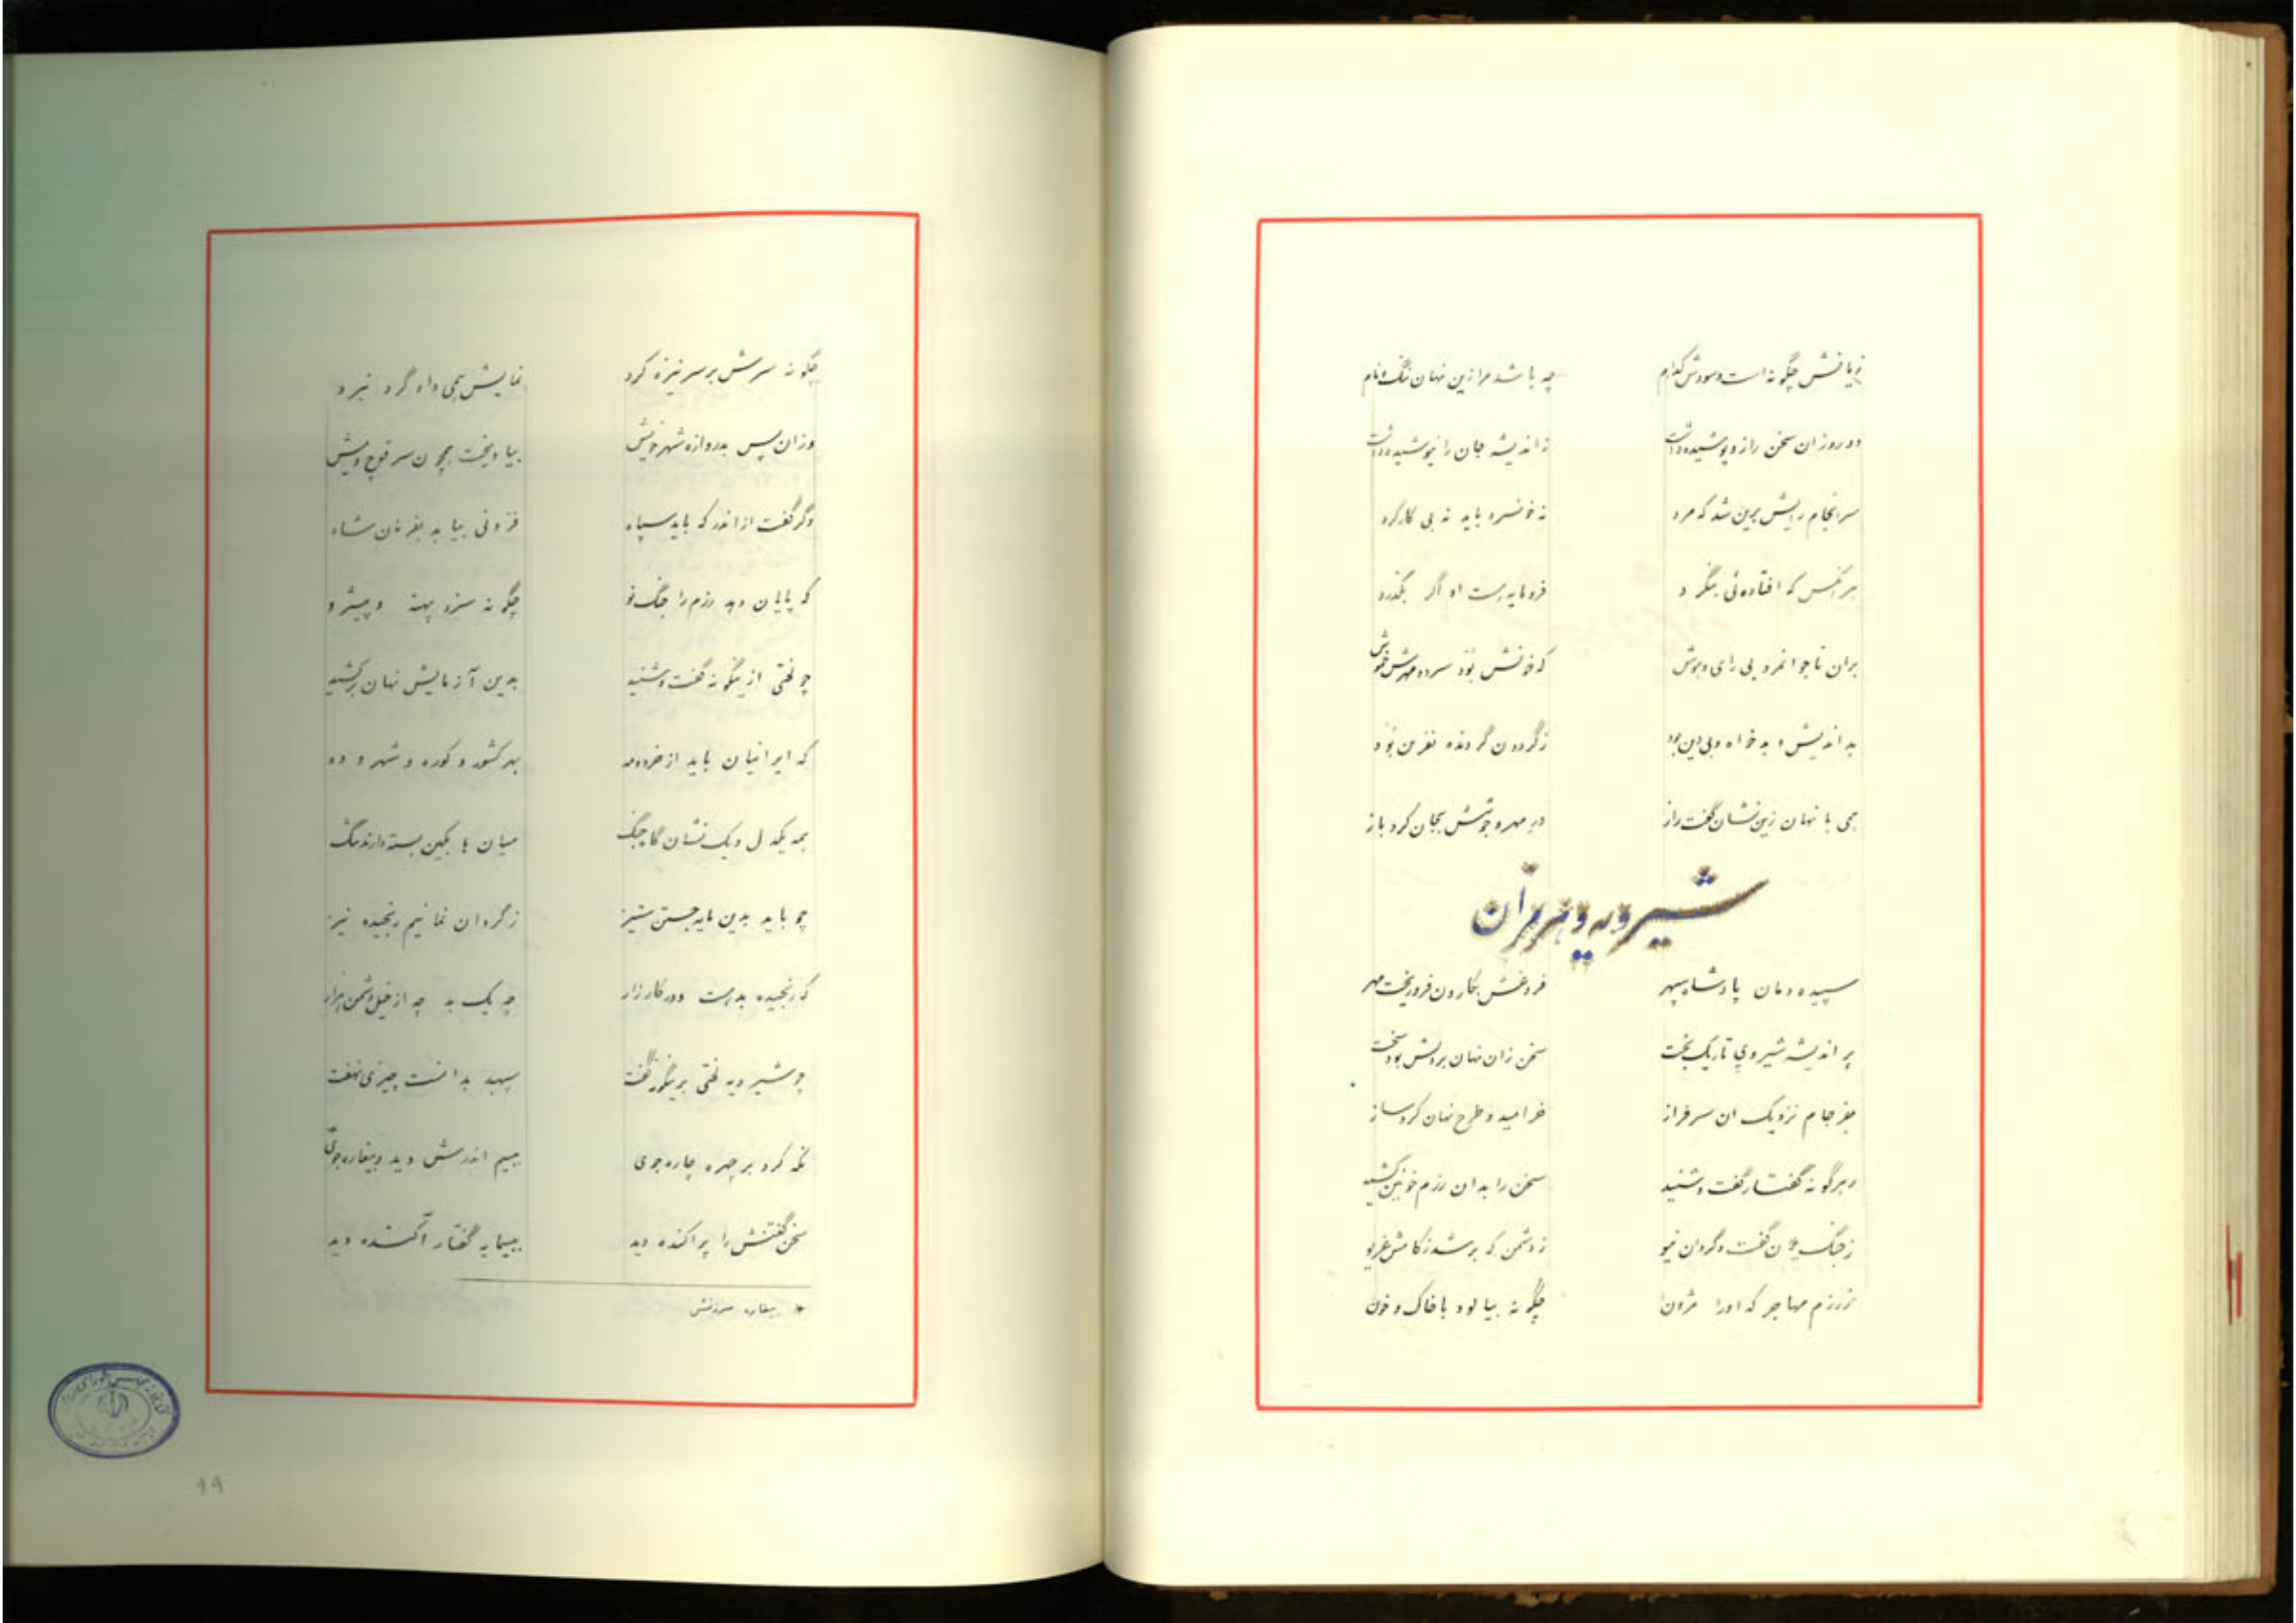 زیانش چگونه است و سودش کدام چه باشد مرا زین نهان ننگ و نام
دو روز آن سخن راز و پوشیده داشت ز اندیشه جان را نیوشیده داشت
سرانجام رایش برین شد که مرد نه خونسرد باید نه بی کارکرد
هر آنکس که افتاده‌ئی بنگرد فرومایه است او اگر بگذرد
بران ناجوانمرد بی رای و هوش که خونش بود سرد و مهرش خموش
بداندیش و بدخواه و بی دین بود ز گردون گردنده نفرین بود
همی با نهان زین نشان گفت راز در مهر و جوشش بجان کرد باز
شیرویه و هرمزان
سپیده دمان پادشاه سپهر فروغش بکارون فروریخت مهر
پر اندیشه شیروی تاریک بخت سخن زان نهان بر دلش بود سخت
بفرجام نزدیک آن سرفراز خرامید و طرح نهان کرد ساز
ز هرگونه گفتار گفت و شنید سخن را بدان رزم خونین کشید
ز جنگ یلان گفت و گردان نیو ز دشمن که بر شد ز کامش غریو
ز رزم مهاجر که او را بگونه بیالود با خاک و خون
چگونه سرش بر سر نیزه کرد نمایش همی داد گرد نبرد
وزان پس بدروازه شهر خویش بیاویخت همچون سر قوچ و میش
دگر گفت از اندر که باید سپاه فزونی بیابد بفرمان شاه
که پایان دهد رزم را جنگ نو چگونه سزد پهنه و پیشرو
چو لختی ازینگونه گفت و شنید بدین آزمایش نهان برکشید
که ایرانیان باید از خرد و مه بهر کشور و کوره و شهر و ده
همه یکدل و یک نشان گاه جنگ میان ها بکین بسته دارند تنگ
چو باید بدین مایه جستن ستیز ز گردان نمانیم رنجیده نیز
که رنجیده بد است در کارزار چه یک به چه از خیل دشمن هزار
چو شیرویه لختی برینگونه گفت سپهبد بدانست چیزی نهفت
نگه کرد بر چهره چاره جوی ببیم اندرش دید و بیغاره جوی
سخن گفتنش را پراکنده دید ببیمایه گفتار آکنده دید
* بیغاره سرزنش
۹۹